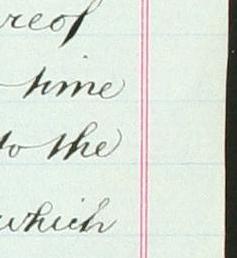 reof
time
to the
which